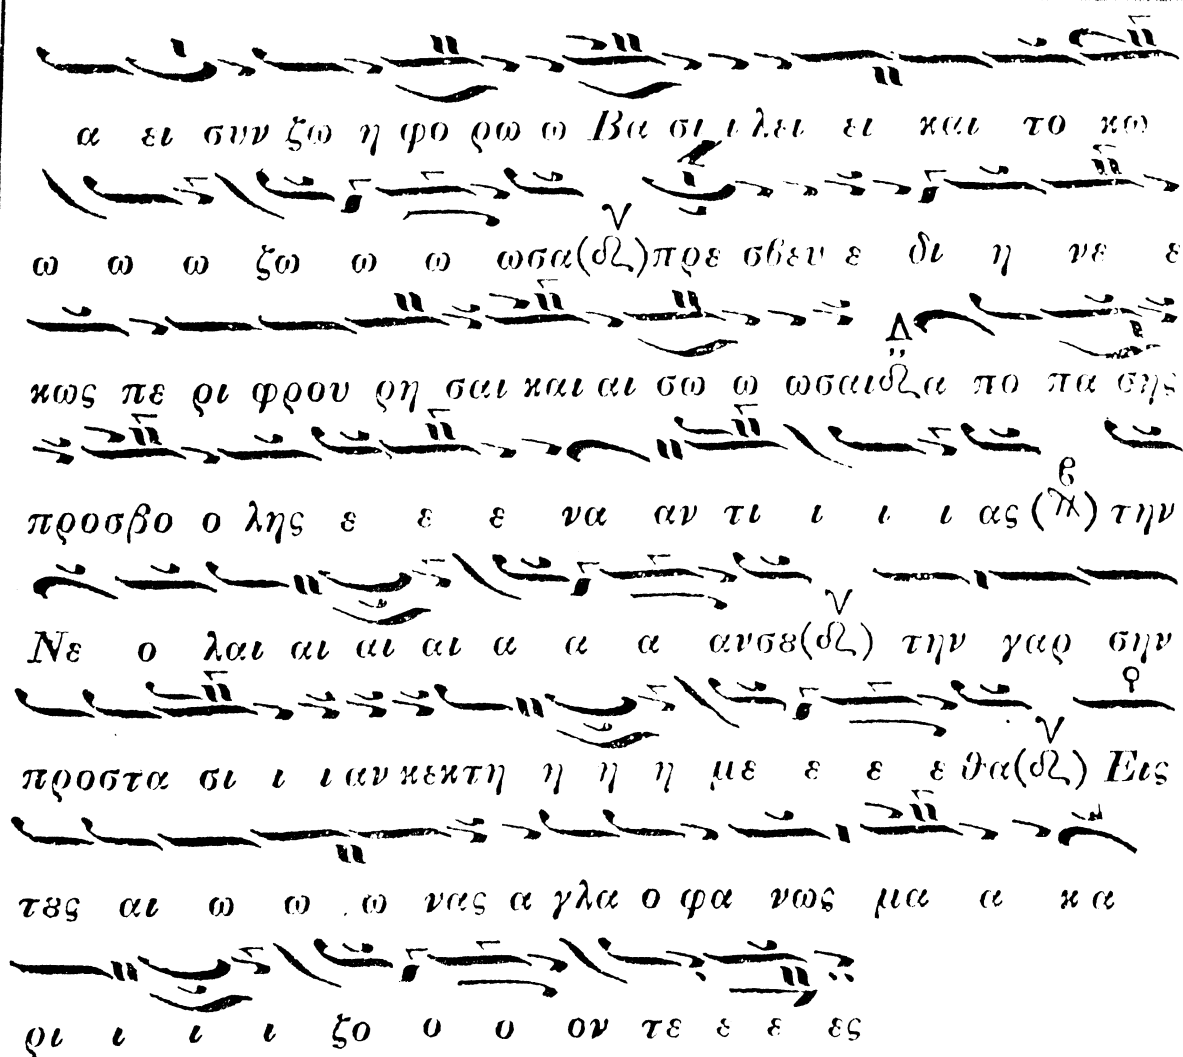 α ει συν ζω η φο ρω ω Βα σι ι λει ει και το κω
ω ω ω ζω ω ω ωσα(δι)πρε σβευ ε δι η νε ε
κως πε ρι φρου ρη σαι και αι σω ω ωσαιδι α πο πα σης
προσβο ο λης ε ε ε να αν τι ι ι ι ας (πα) την
Νε ο λαι αι αι αι α α α ανσȣ(δι) την γαρ σην
προστα σι ι ι αν κεκτη η η η με ε ε ε θα(δι) Εις
τȣς αι ω ω ω νας α γλα ο φα νως μα α κ α
ρι ι ι ι ζο ο ο ον τε ε ε ες